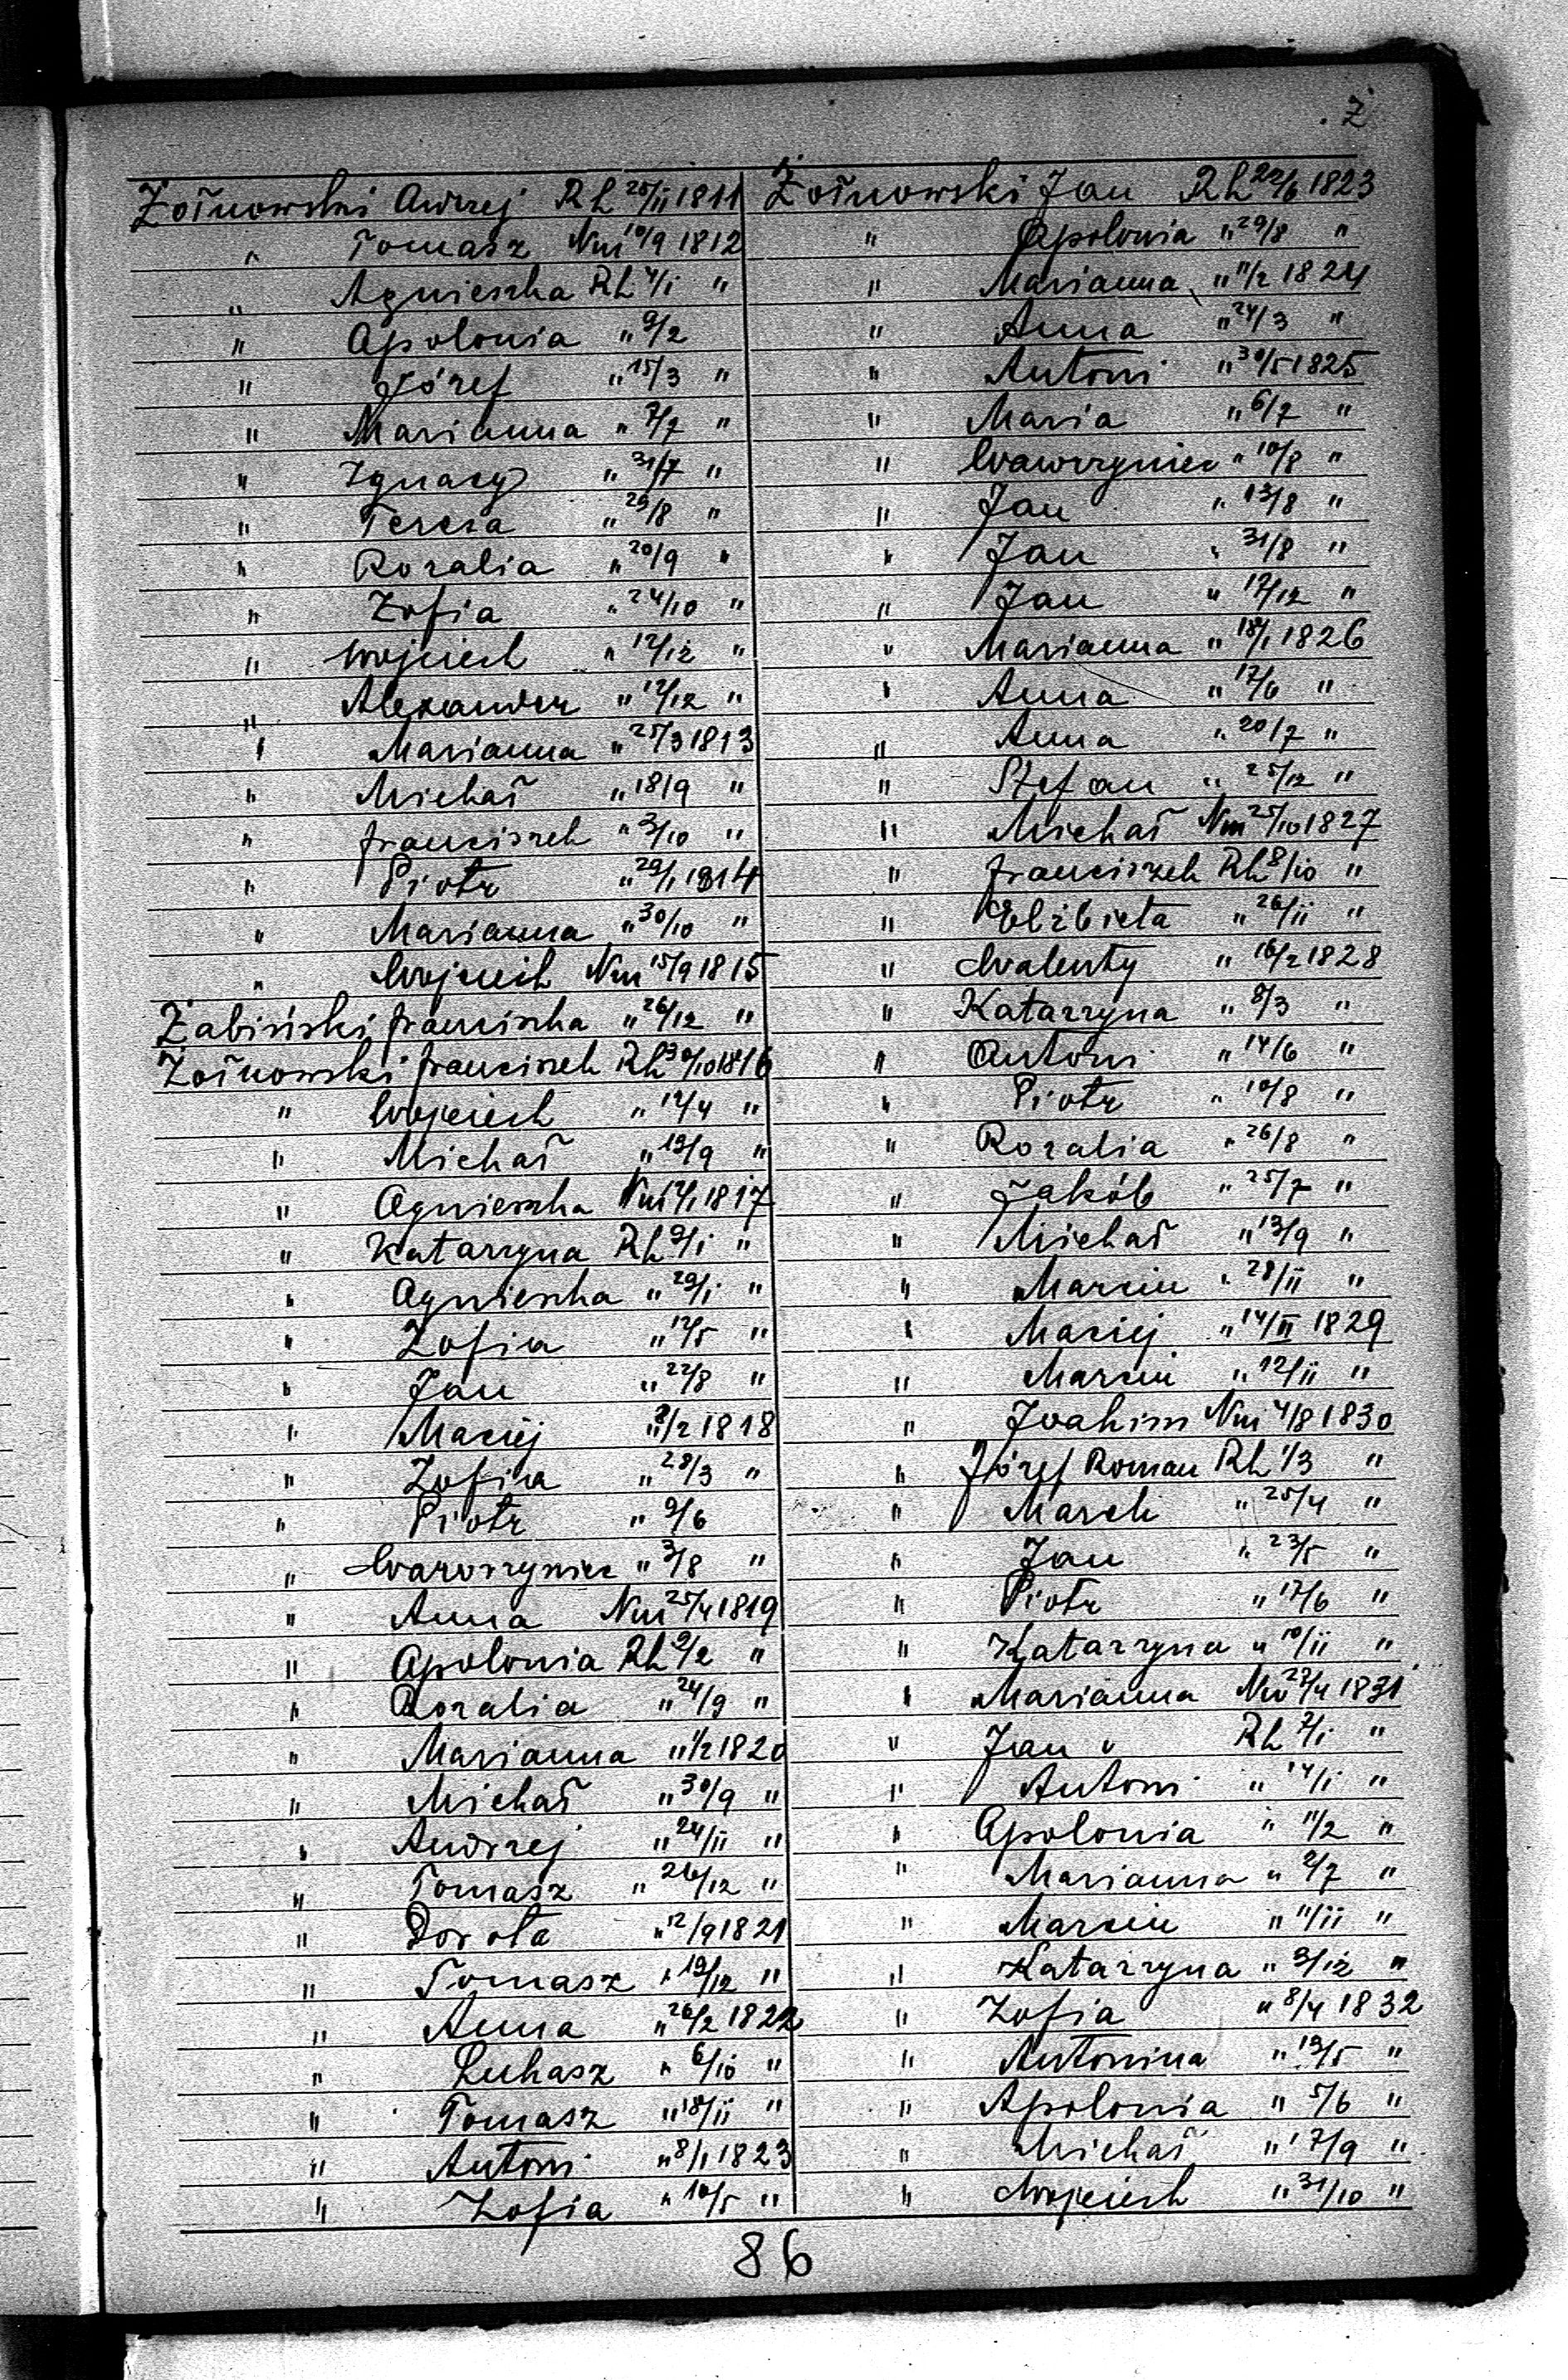 . Ż
Żołnowski Andrzej Rk 25/11 1811
" Tomasz Nm 10/9 1812
" Agnieszka Rk 4/1 "
" Apolonia " 9/2
" Józef " 15/3 "
" Marianna " 7/7 "
" Ignacy " 31/7 "
" Teresa " 29/8 "
" Rozalia " 20/9 "
" Zofia " 24/10 "
" Wojciech " 12/12 "
" Alexander " 12/12 "
" Marianna " 25/3 1813
" Michał " 18/9 "
" Franciszek " 3/10 "
" Piotr " 29/1 1814
" Marianna " 30/10 "
" Wojciech Nm 15/9 1815
Żabiński Franciszka " 26/12 "
Żołnowski Franciszek Rk 30/10 1816
" Wojciech " 12/4 "
" Michał " 19/9 "
" Agnieszka Nm 1817
" Katarzyna Rk 9/1 "
" Agnieszka " 29/1 "
" Zofia " 12/5 "
" Jan " 22/8 "
" Maciej " 2/2 1818
" Zofia " 28/3 "
" Piotr " 9/6
" Wawrzyniec " 3/8 "
" Anna Nm 25/4 1819
" Apolonia Rk 9/2 "
" Rozalia " 24/9 "
" Marianna " 1/2 1820
" Michał " 30/9 "
" Andrzej " 24/11 "
" Tomasz " 26/12 "
" Dorota " 12/9 1821
" Tomasz " 19/12 "
" Anna " 26/2 1822
" Lukasz " 6/10 "
" Tomasz " 18/11 "
" Antoni " 8/1 1823
" Zofia " 10/5 "
Żołnowski Jan Rk 22/6 1823
" Apolonia " 29/8 "
" Marianna " 11/2 1824
" Anna " 24/3 "
" Antoni " 30/5 1825
" Maria " 6/2 "
" Wawrzyniec " 10/8 "
" Jan " 13/8 "
" Jan " 31/8 "
" Jan " 17/12 "
" Marianna " 18/1 1826
" Anna " 17/6 "
" Anna " 20/7 "
" Stefan " 25/12 "
" Michał Nm 25/10 1827
" Franciszek Rk 8/10 "
" Elżbieta " 26/11 "
" Walenty " 16/2 1828
" Katarzyna " 8/3 "
" Antoni " 14/6 "
" Piotr " 10/8 "
" Rozalia " 26/8 "
" Jakób " 25/7 "
" Michał " 13/9 "
" Marcin " 28/11 "
" Maciej " 14/II 1829
" Marcin " 12/11 "
" Joahim Nm 4/8 1830
" Józef Roman Rk 1/3 "
" Marek " 25/4 "
" Jan " 23/5 "
" Piotr " 17/6 "
" Katarzyna " 10/11 "
" Marianna Nm 27/4 1831
" Jan " Rk 7/1 "
" Antoni " 14/1 "
" Apolonia " 11/2 "
" Marianna " 2/7 "
" Marcin " 11/11 "
" Katarzyna " 3/12 "
" Zofia " 8/4 1832
" Antonina " 19/5 "
" Apolonia " 5/6 "
" Michał " 17/9 "
" Wojciech " 31/10 "
86